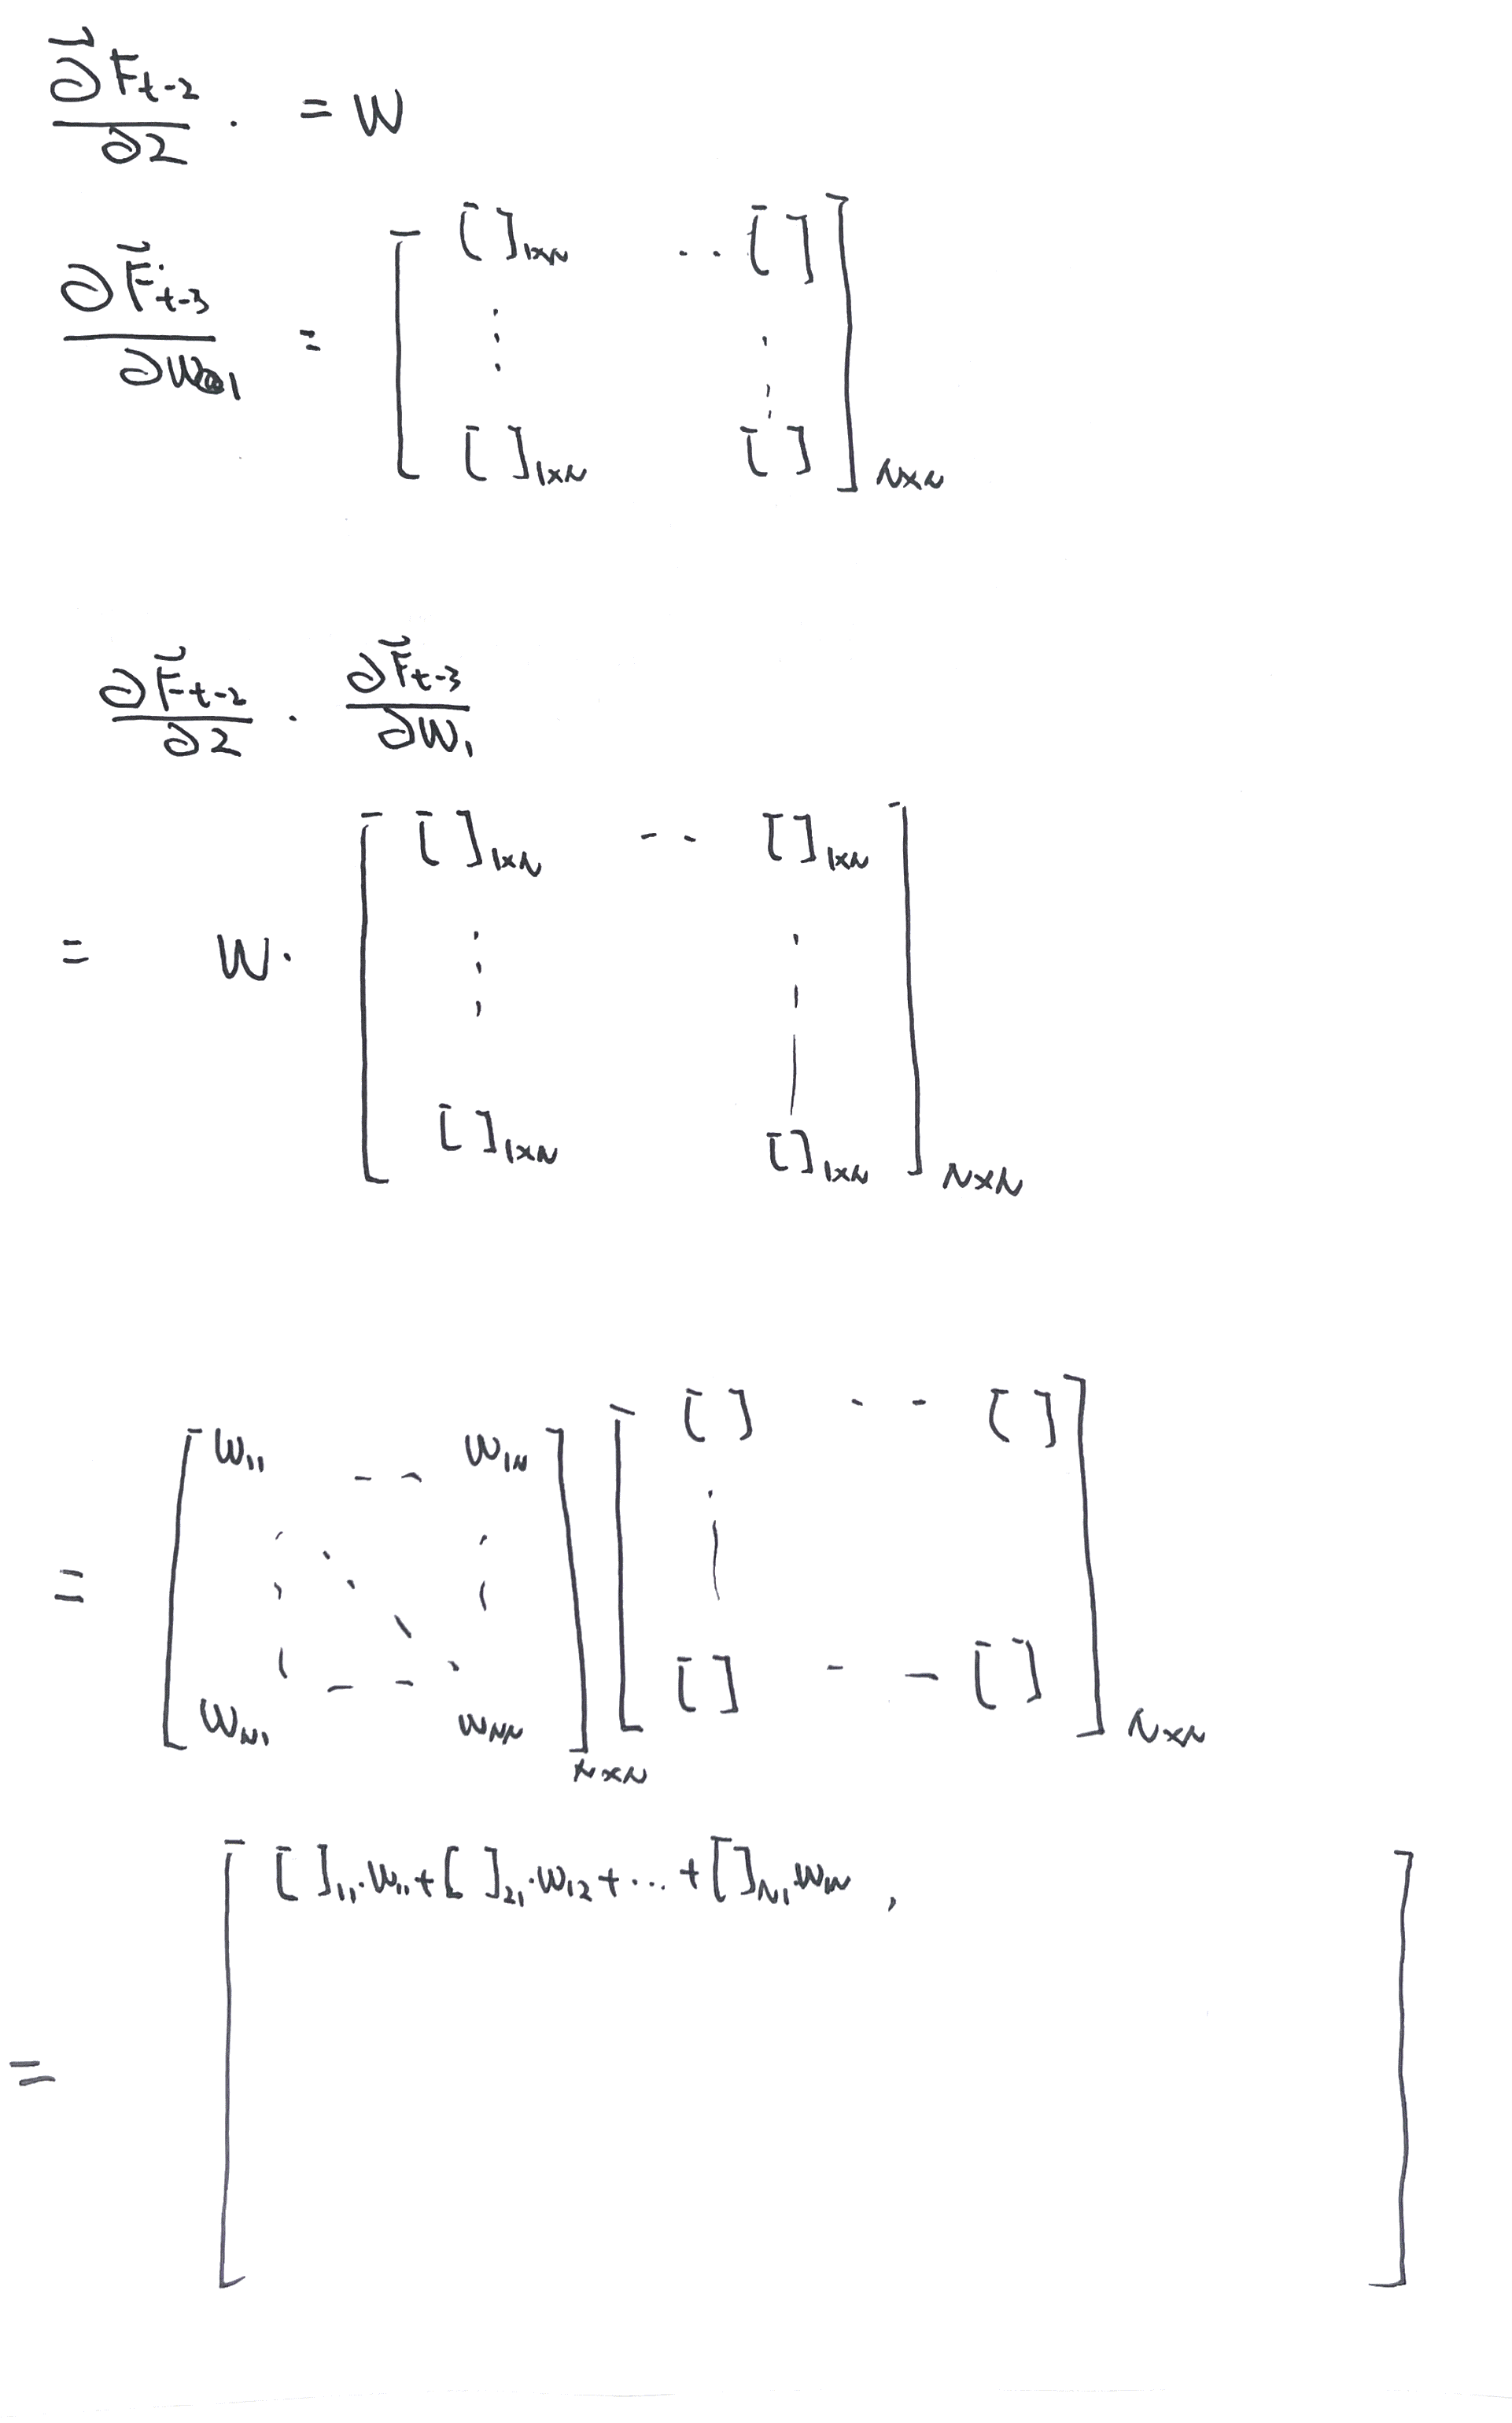 ∂F⃗t-2 / ∂2 · = W
∂F⃗t-3 / ∂W1 = [ [ ]1×N ·· [ ] ⋮ ⋮ [ ]1×N [ ] ]N×N
∂F⃗t-2 / ∂2 · ∂F⃗t-3 / ∂W1
= W · [ [ ]1×N -- [ ]1×N ⋮ ⋮ [ ]1×N [ ]1×N ]N×N
= [ W11 -- W1N ⋮ ⋱ ⋮ WN1 -- WNN ]N×N [ [ ] -- [ ] ⋮ [ ] -- [ ] ]N×N
= [ [ ]11·W11+[ ]21·W12+...+[ ]N1·W1N , ]